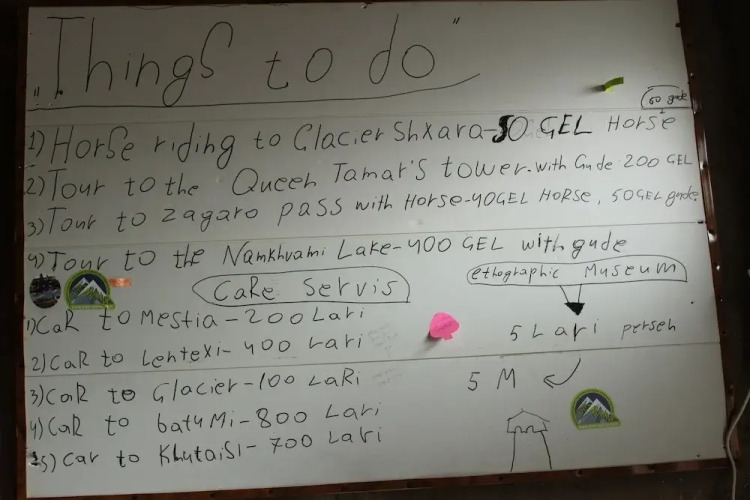 "Things to do"
60 gude
1) Horse riding to Glacier Shxara-50 GEL Horse
2) Tour to the Queen Tamar's tower. with Gude 200 GEL
3) Tour to Zagaro pass with Horse-40GEL HORSE, 50GEL gude.
4) Tour to the Namkhvami Lake-400 GEL with gude
CaRe Servis
1) CaR to Mestia-200 Lari
2) CaR to Lentexi-400 Lari
3) CaR to Glacier-100 LaRi
4) CaR to batuMi-800 Lari
5) Car to Khutaisi-700 Lari
ethographic Museum
5 Lari perseh
5 M